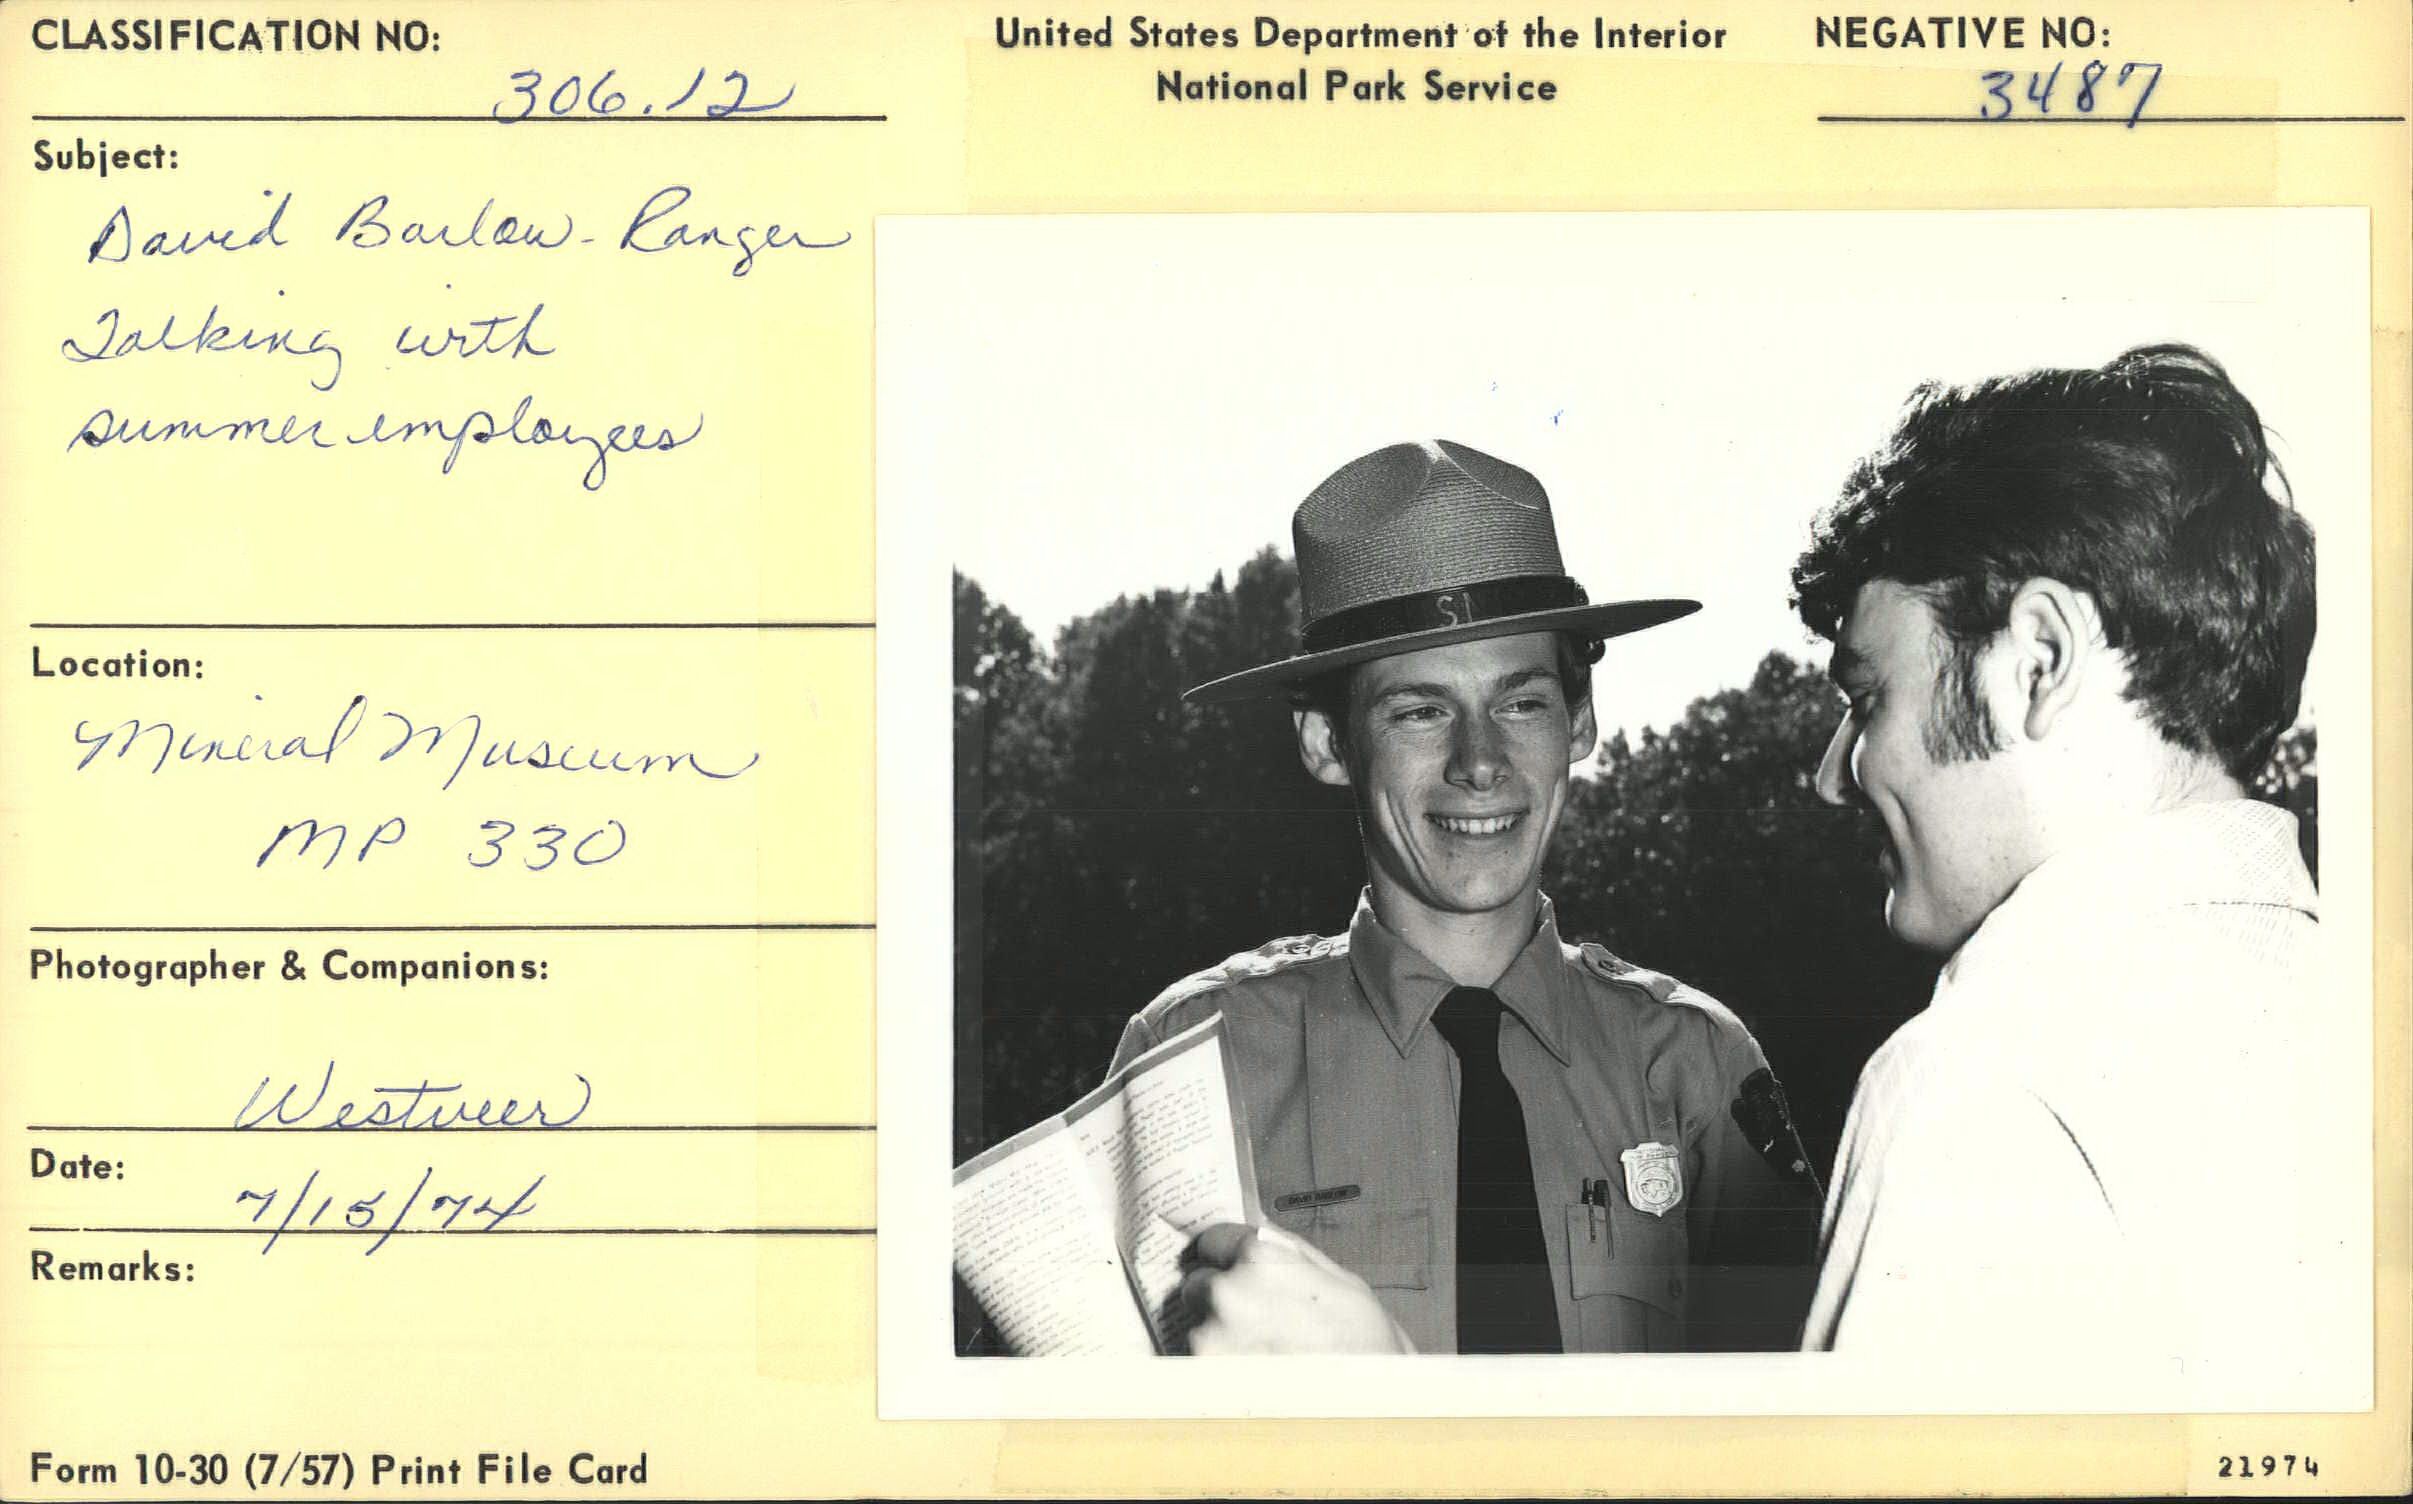 CLASSIFICATION NO:
306.12
United States Department of the Interior
National Park Service
NEGATIVE NO:
3487
Subject:
David Barlow - Ranger
Talking with
summer employees
Location:
Mineral Museum
MP 330
Photographer & Companions:
Westveer
Date:
7/15/74
Remarks:
DAVID BARLOW
Form 10-30 (7/57) Print File Card
21974